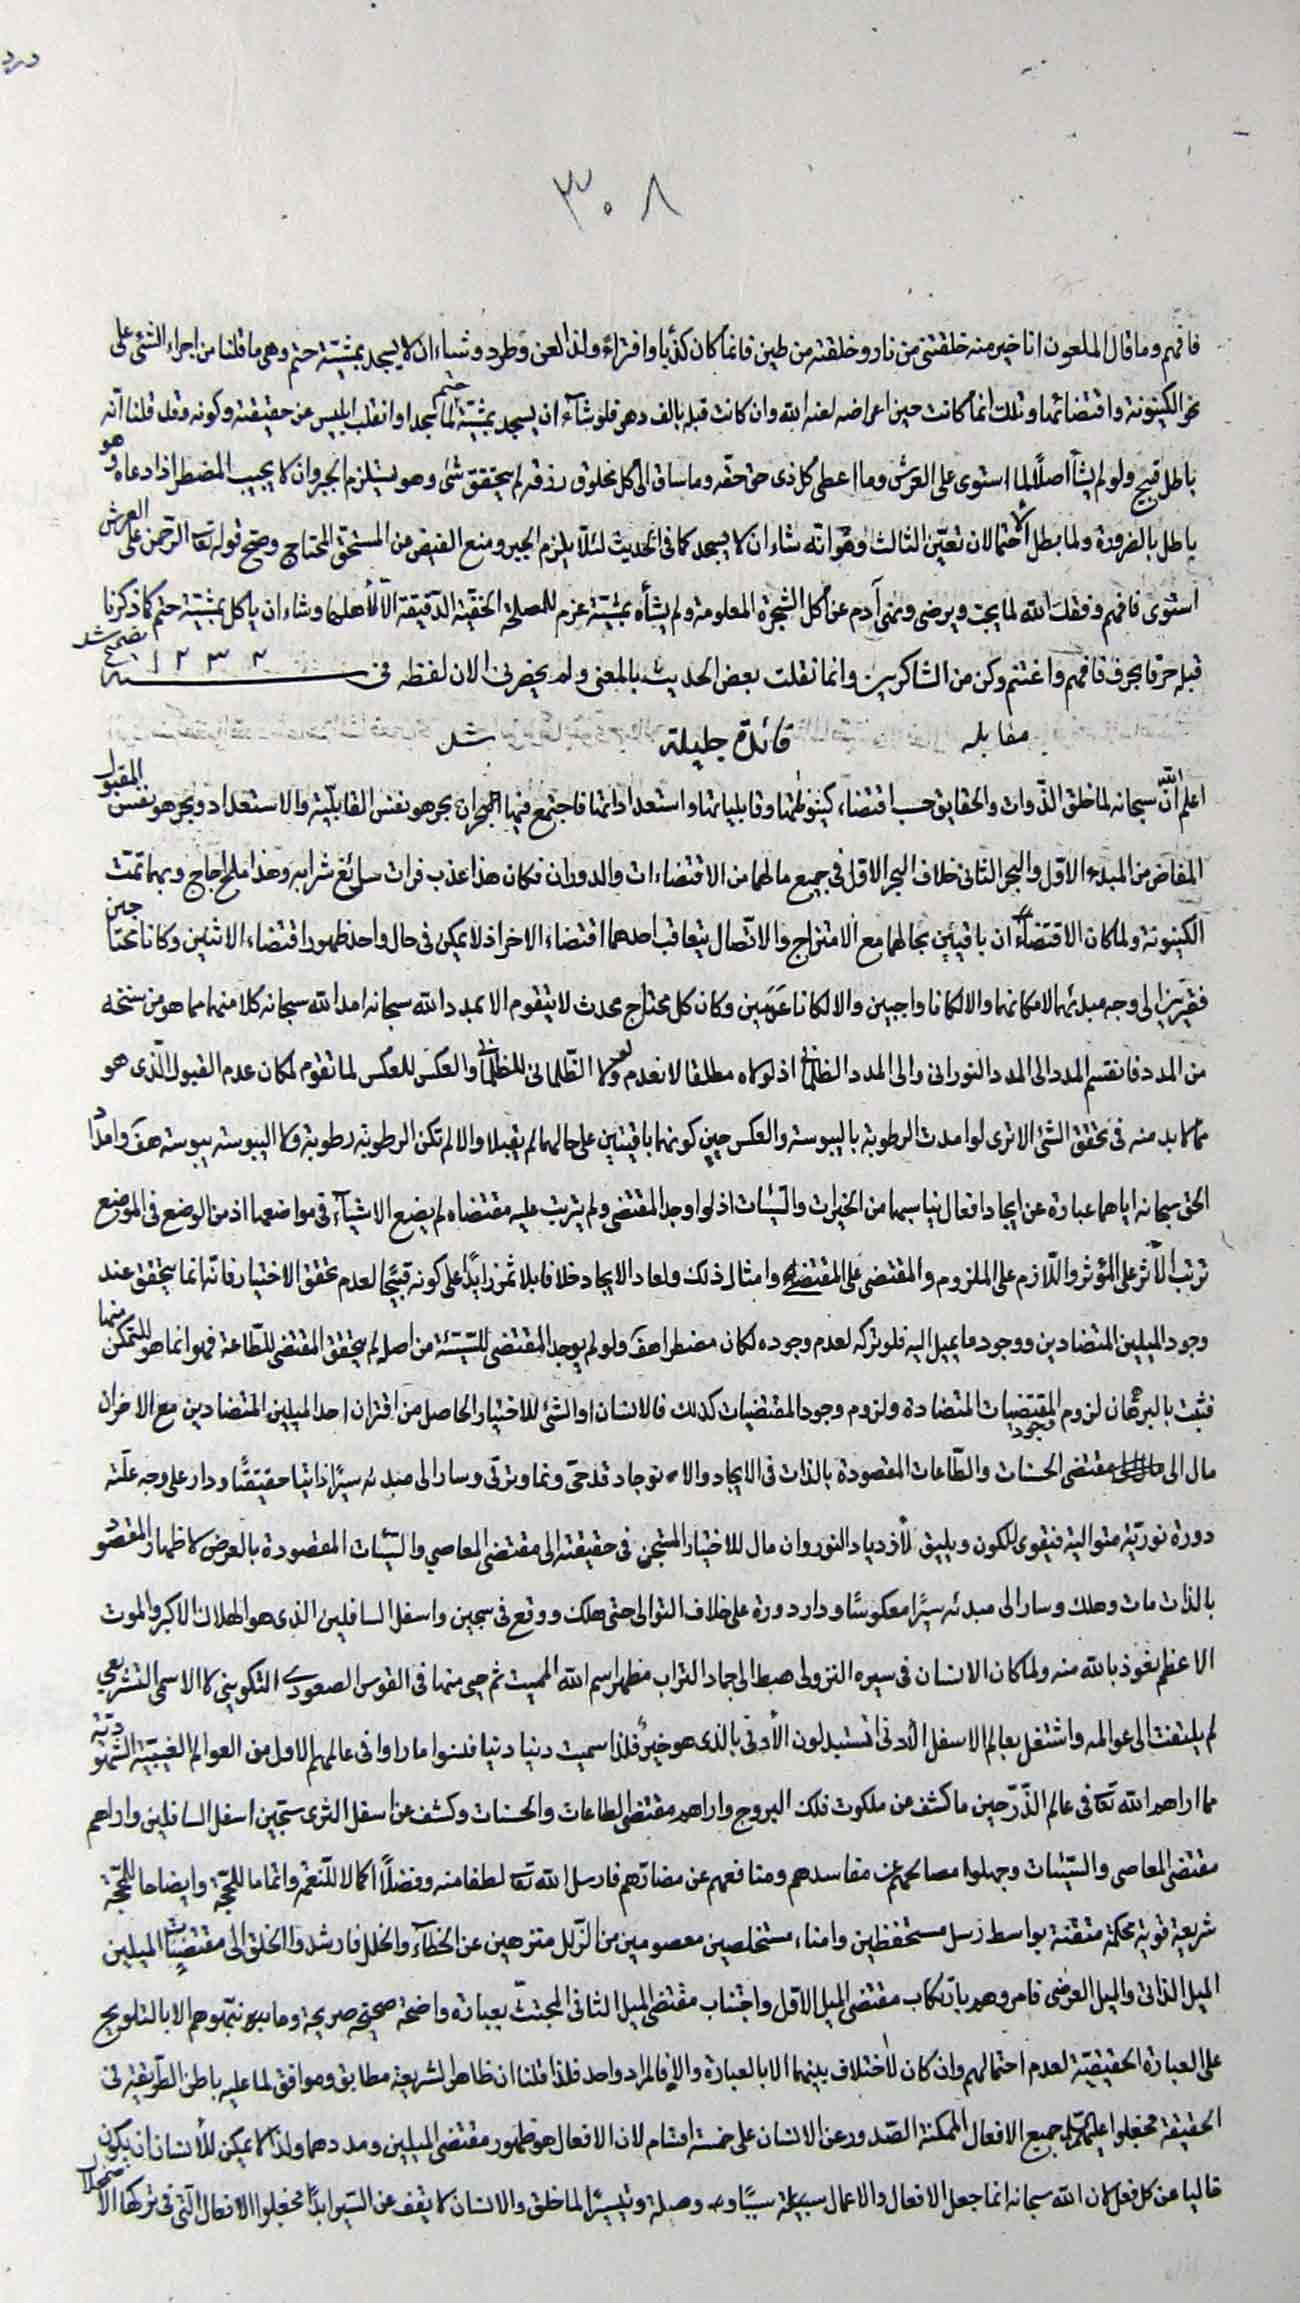 ٣٠٨
فافهم وما قال الملعون انا خير منه خلقتنی من نار وخلقته من طين فانما كان كذبا وافتراء ولذا لعن وطرد وشاء ان لا يسجد بمشيّة حتم وهی ما قلنا من اجراء الشئ علی
نحو الكينونة واقتضائها وتلك انما كانت حين اعراضه لعنه الله وان كانت قبله بالف دهر فلو شاء ان يسجد بمشيّة حتم لما يسجد او انقلب ابليس عن حقيقته وكونه وقد قلنا انّه
باطل قبيح ولو لم يشأ اصلاً لما استوی علی العرش وما اعطی كل ذی حق حقّه وما ساق الی كل مخلوق رزقه لم يتحقق شئ وهو يستلزم الجبر وان لا يجيب المضطر اذا دعاه وهو
باطل بالضرورة ولما بطل الاحتمالان تعيّن الثالث وهو انّه شاء ان لا يسجد كما فی الحديث لئلّا يلزم الجبر ومنع الفيض من المستحق المحتاج وصح قوله تعا الرّحمن علی العرش
استوی فافهم وفقك الله لما يحب ويرضی ونهی آدم عن اكل الشجرة المعلومة ولم يشأه بمشيّة عزم للمصلحة الخفيّة الدّقيقة الّا لأهلها وشاء ان ياكل بمشيّة حتم كما ذكرنا
قبله حرفا بحرف فافهم واغتنم وكن من الشاكرين وانما نقلت بعض الحديث بالمعنی ولم يحضرنی الان لفظه فی سنه ١٢٣٢ تصحيح شد
مقابله فائدة جليلة شد
اعلم انّ الله سبحانه لما خلق الذّوات والحقايق حسب اقتضاء كينونتها وقابلياتها واستعداداتها فاجتمع فيها البحران بحر هو نفس القابليّة والاستعداد وبحر هو نفس المقبول
المفاض من المبدء الاوّل والبحر الثانی خلاف البحر الاوّل فی جميع مالهما من الاقتضاءات والدوران فكان هذا عذب فرات سائغ شرابه وهذا ملح اجاج وبهما تمّت
الكينونة ولما كان الاقتضاءان باقيين بحالهما مع الامتزاج والاتّصال يتعاقب احدهما اقتضاء الاخر اذ لا يمكن فی حال واحد ظهور اقتضاء الاثنين وكانا محتاجين
فقيرين الی وجه مبدئهما لامكانهما والا لكانا واجبين والا لكانا عدمين وكان كل محتاج محدث لا يتقوم الا بمدد الله سبحانه امد الله سبحانه كلا منهما مما هو من سنخه
من المدد فانقسم المدد الی المدد النورانی والی المدد الظلمانی اذ لولاه مطلقا لانعدم ولا الظّلمانی للظلمانی والعكس للعكس لما تقوم لمكان عدم القبول الّذی هو
مما لا بد منه فی تحقق الشئ الا تری لو امدت الرطوبة باليبوسة والعكس حين كونهما باقيتين علی حالهما لم يقبلا والا لم تكن الرطوبة رطوبة ولا اليبوسة يبوسة هف وامداد
الحق سبحانه اياهما عبارة عن ايجاد افعال يناسبهما من الخيرات والسّيئات اذ لو اوجد المقتضی ولم يترتب عليه مقتضاه لم يضع الاشياء فی مواضعها اذ من الوضع فی الموضع
ترتب الأثر علی المؤثر واللّازم علی الملزوم والمقتضی علی المقتضی وامثال ذلك ولعاد الايجاد خلافا بلا ثمر زايدًا علی كونه قبيحًا لعدم تحقق الاختيار فانّه انما يتحقق عند
وجود الميلين المتضادين ووجود ما يميل اليه فلو تركه لعدم وجوده لكان مضطرا هف ولو لم يوجد المقتضی للسّيّئة من اصله لم يتحقق المقتضی للطّاعة فهو انما هو للتمكن منها
فثبت بالبرهان لزوم وجود المقتضيات المتضادة ولزوم وجود المقتضيات كذلك فالانسان او الشئ للاختيار الحاصل من اقتران احد الميلين المتضادين مع الاخر ان
مال الی مقتضی الحسنات والطّاعات المقصودة بالذات فی الايجاد والا يوجاد قد حيی ونما وترقی وسار الی مبدئه سيرًا ذاتيا حقيقيًّا ودار علی وجه علّته
دورة نوريّة متوالية فتقوی للكون ويليق لأزدياد النور وان مال للاختيار المستجن فی حقيقته الی مقتضی المعاصی والسّيّئات المقصودة بالعرض لاظهار المقصود
بالذات مات وهلك وسار الی مبدئه سيرًا معكوسًا ودار دورة علی خلاف التوالی حتی هلك ووقع فی سجين واسفل السافلين الذی هو الهلاك الاكبر والموت
الاعظم نعوذ بالله منه ولما كان الانسان فی سيره النزولی هبط الی جماد التراب مظهر اسم الله المميت ثم حيی منها فی القوس الصعودی التكوينی لا الاسمی التشريعی
لم يلتفت الی عوالمه واشتغل بعالم الاسفل الأدنی اتستبدلون الأدنی بالذی هو خيرٌ فلذا سميت دنيا دنيا فنسوا ما راوا فی عالمهم الاول من العوالم الغيبيّة الشهوديّة
مما اراهم الله تعا فی عالم الذّر حين ما كشف عن ملكوت فلك البروج واراهم مقتضی الطاعات والحسنات وكشف عن اسفل الثری سجّين اسفل السافلين واراهم
مقتضی المعاصی والسّيّئات وجهلوا مصالحهم عن مفاسدهم ومنافعهم عن مضارّهم فارسل الله تعا لطفا منه وفضلًا اكمالا للنّعمة واتماما للحجّة وايضاحا للمحجّة
شريعة قوية محكمة متقنة بواسط رسل مستحفظين وامناء مستخلصين معصومين من الزّلل منزهين عن الخطاء والخلل فارشدوا الخلق الی مقتضيات الميلين
الميل الذاتی والميل العرضی فامروهم بارتكاب مقتضی الميل الاوّل واجتناب مقتضی الميل الثانی المجتثّ بعبارة واضحة صحيحة صريحة وما نبّهوهم الا بالتلويح
علی العبارة الحقيقيّة لعدم احتمالهم وان كان لاختلاف بينهما الا بالعبارة والا فالمراد واحد فلذا قلنا ان ظاهر الشريعة مطابق وموافق لما عليه باطن الطّريقة فی
الحقيقة فجعلوا عليهم السّلم جميع الافعال الممكنة الصّدور عن الانسان علی خمسة اقسام لان الافعال هو ظهور مقتضی الميلين ومددهما ولذا لا يمكن للأنسان ان يكون
خاليا عن كل فعل لان الله سبحانه انما جعل الافعال والاعمال سبيلة سببًا وصلة وتيسيرًا لما خلق والانسان لا يقف عن السّير ابدًا فجعلوا الافعال الّتی فی تركها الاضمحلال